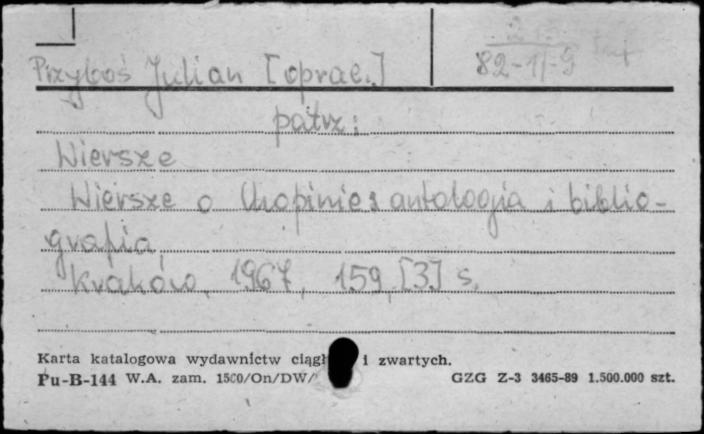 82-1/-9
Przyboś Julian [oprac.]
patrz:
Wiersze
Wiersze o Chopinie: antologia i biblio-
grafia,
Kraków, 1967, 159, [3] s.
Karta katalogowa wydawnictw ciągł i zwartych.
Pu-B-144 W.A. zam. 1500/On/DW/ GZG Z-3 3465-89 1.500.000 szt.